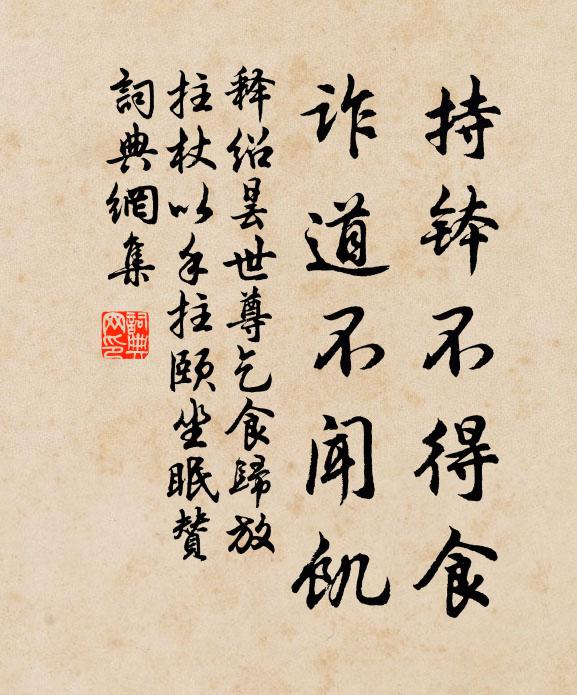 持鉢不得食
诈道不闻饥
释绍昙世尊乞食歸放
拄杖以手拄頤坐眠贊
詞典網集
詞典网印